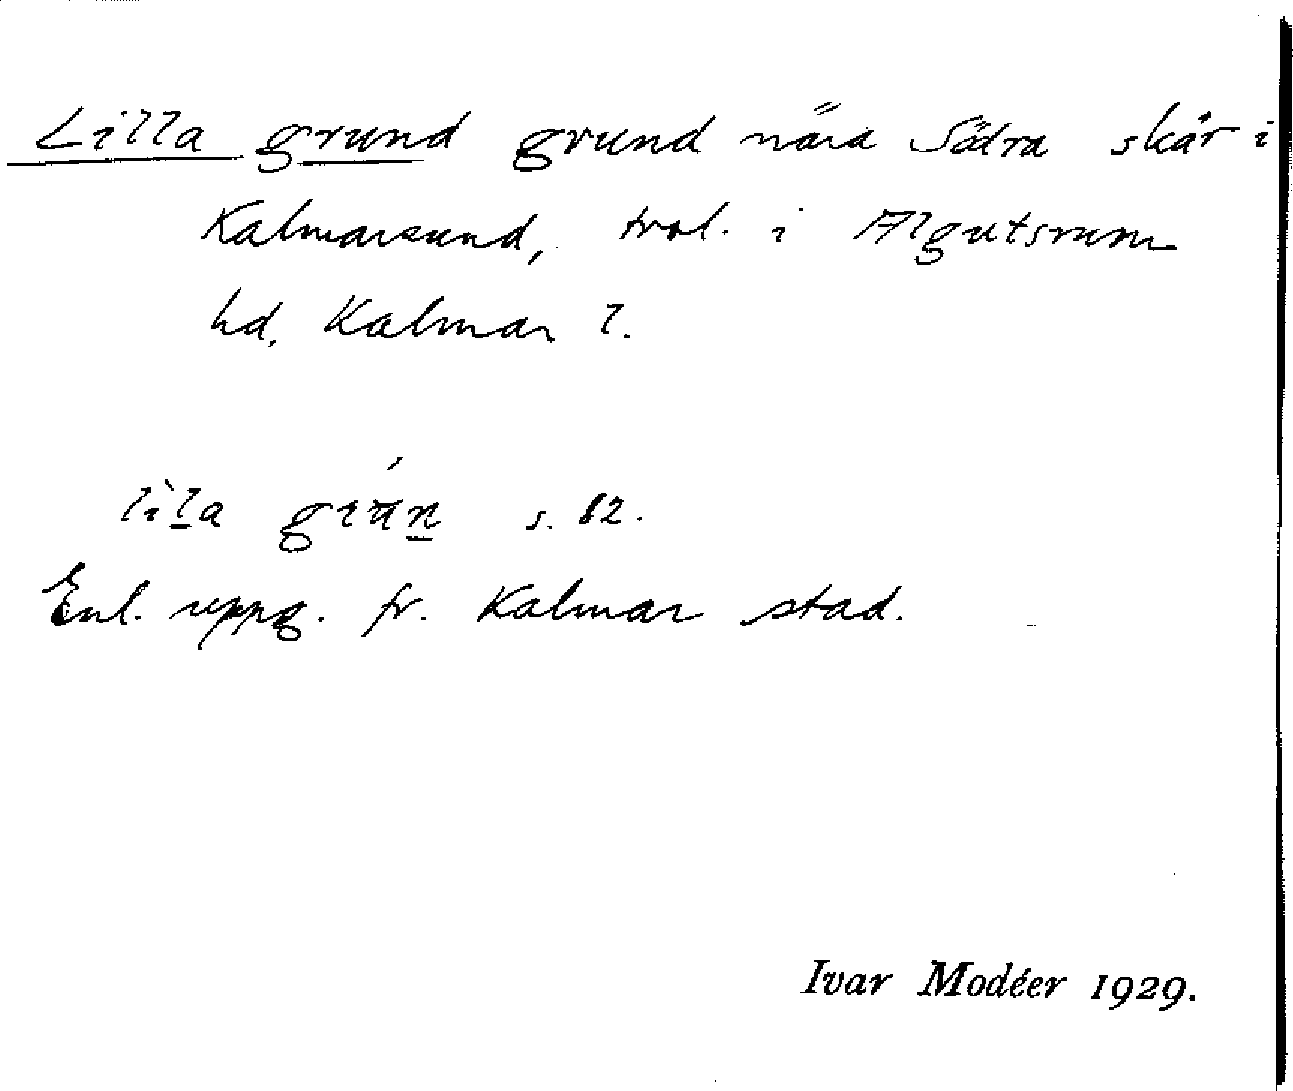 Lilla grund grund nära Södra skär i
Kalmarsund, trol. i Algutsrum
hd. Kalmar l.
s. 82.
Enl. uppg. fr. Kalmar stad.
Ivar Modéer 1929.